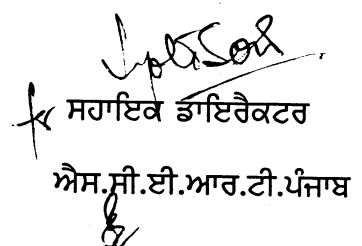 ਸਹਾਇਕ ਡਾਇਰੈਕਟਰ
ਐਸ.ਸੀ.ਈ.ਆਰ.ਟੀ.ਪੰਜਾਬ